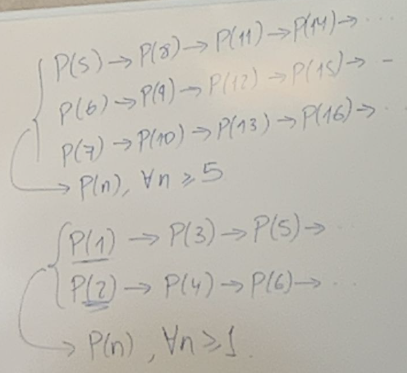 P(5) → P(8) → P(11) → P(14) → ...
P(6) → P(9) → P(12) → P(15) → -
P(7) → P(10) → P(13) → P(16) → .
→ P(n), ∀n ≥ 5
P(1) → P(3) → P(5) → ...
P(2) → P(4) → P(6) → ...
→ P(n), ∀n ≥ 1.